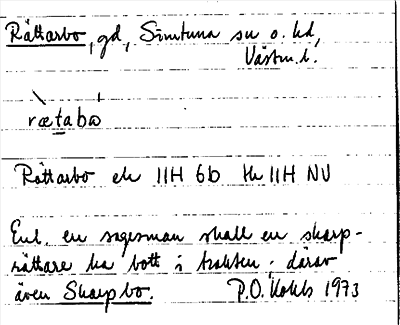 Rättarbo, gd, Simtuna sn o. hd,
Västm. l.
rætabω
Rättarbo ek 11H 6b hk 11H NV
Enl. en sagesman skall en skarp-
rättare ha bott i trakten; därav
även Skarpbo. P.O. 1973